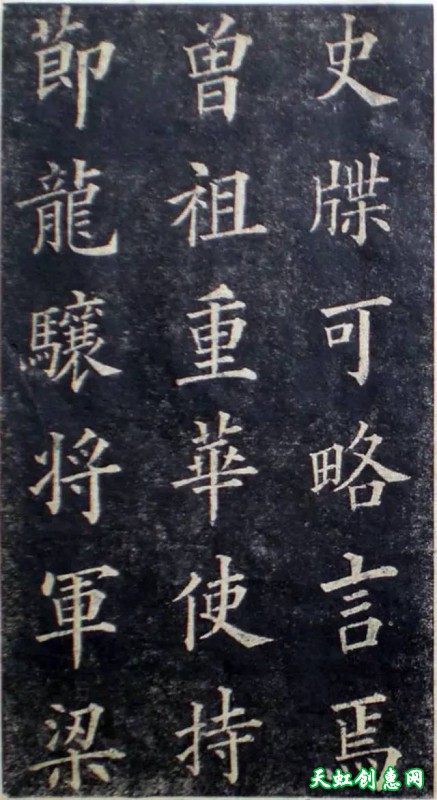 史牒可略言焉
曽祖重華使持
節龍驤将軍梁
天虹创惠网